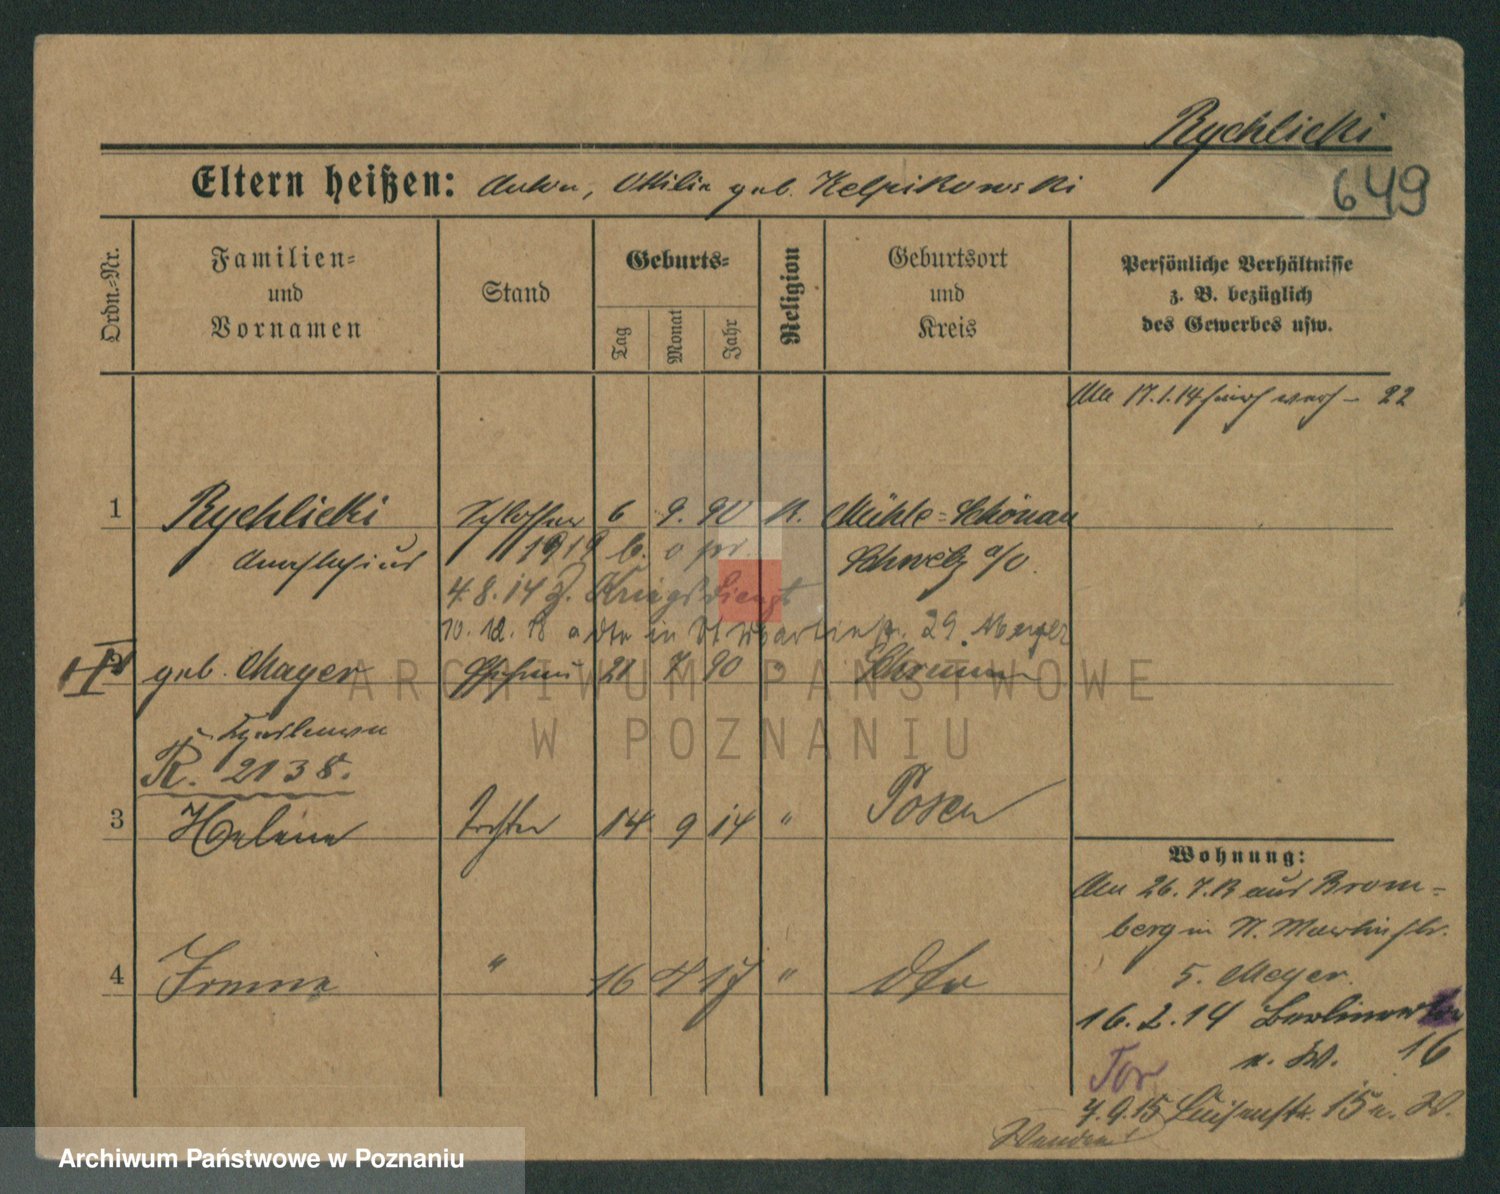 Rychlicki
Eltern heißen: Anton, Ottilie geb. Kelpikowski
649
Ordn.-Nr.
Familien-
und
Vornamen
Stand
Geburts-
Tag
Monat
Jahr
Religion
Geburtsort
und
Kreis
Persönliche Verhältnisse
z. B. bezüglich
des Gewerbes usw.
Am 17.1.14 22
1 Rychlicki Schlosser 6 9. 90 K. Mühle-Schönau
Anastasius 1919 Schwetz a/O.
4.8.14 z. Kriegsdienst
10.12.18 in St Martinstr. 29 Meyer
2 geb. Mayer Ehefrau 21 7 90 " Schrimm
R. 2138.
3 Helene Tochter 14 9 14 " Posen
4 Irmna " 16 4 17 " dto
Wohnung:
Am 26.7.13 aus Brom-
berg in St. Martinstr.
5. Meyer.
16.2.14 Berliner
Tor
n. W. 16
7.9.15 Luisenstr. 15 n. W.
Wenden!
ARCHIWUM PAŃSTWOWE
W POZNANIU
Archiwum Państwowe w Poznaniu